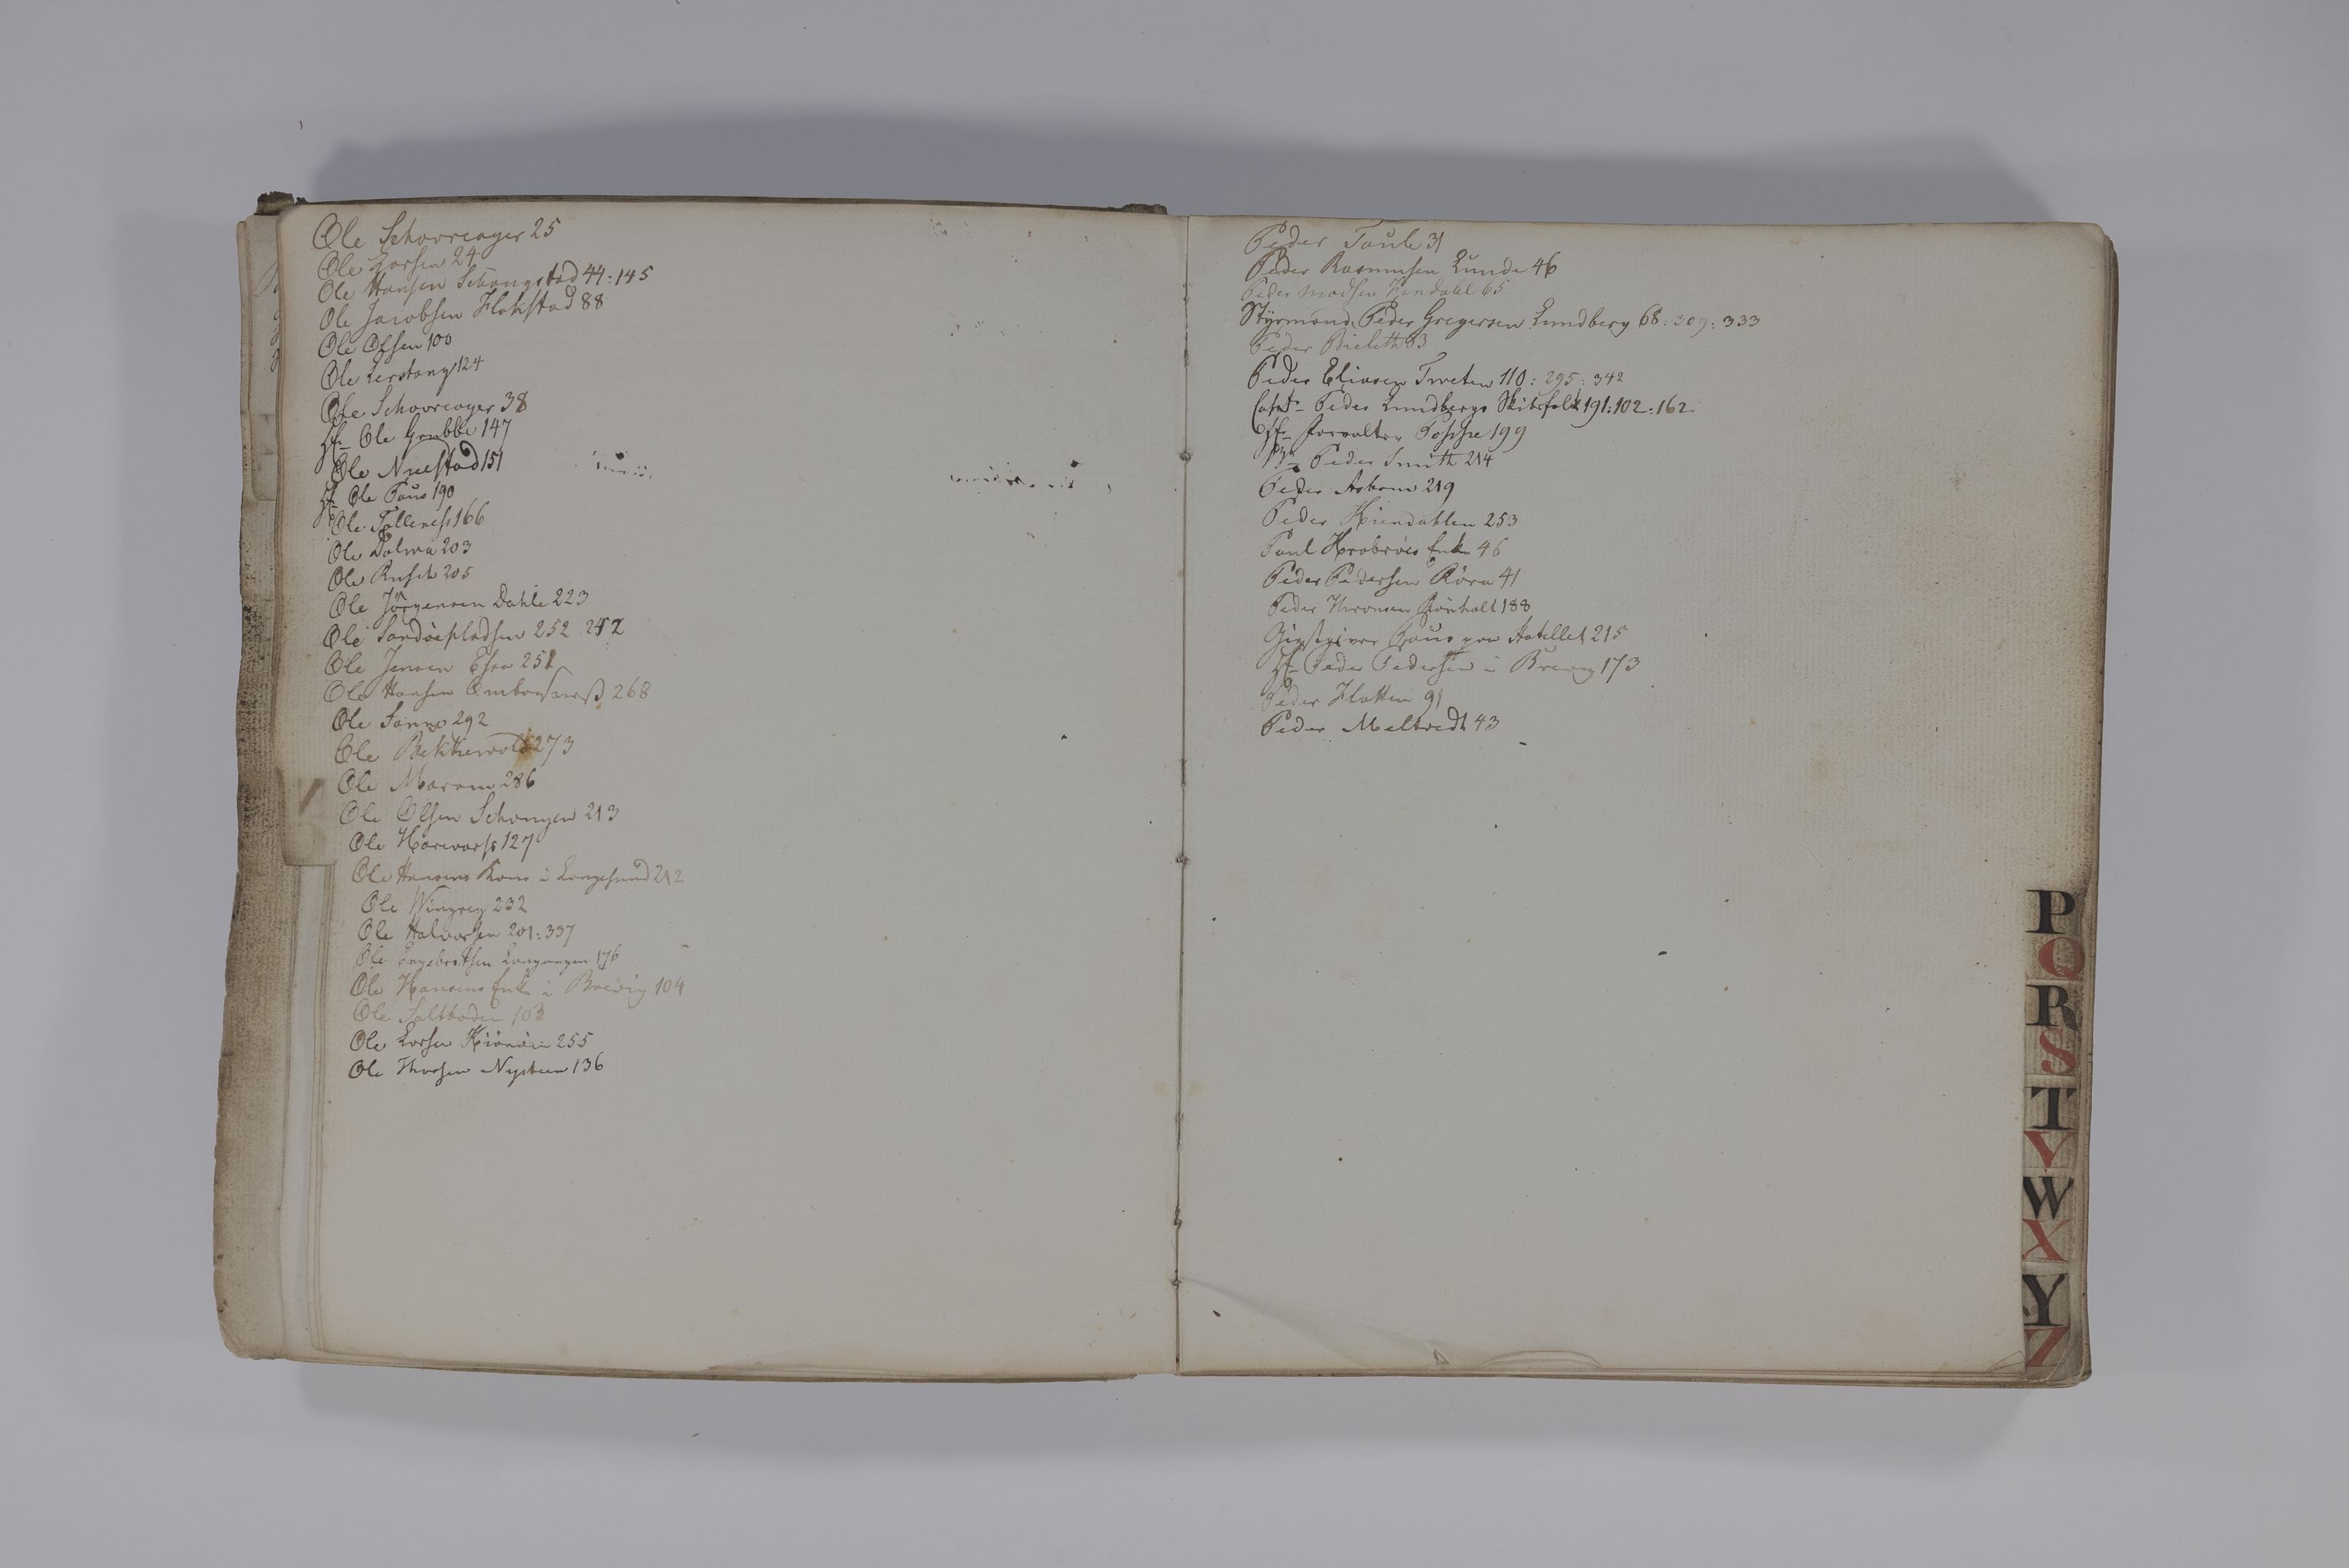 Ole Schovreager 25
Ole Larsen 24
Ole Hansen Schougstad 44:145
Ole Jacobsen Flakstad 88
Ole Olsen 100
Ole Lerstang 124
Ole Schovreager 38
Hr Ole Grubbe 147
Ole Nuestad 151
Hr Ole Paus 190
Ole Tollenes 166
Ole Dolwa 203
Ole Rusch 205
Ole Jörgensen Dahle 223
Ole Sandöepladsen 252 242
Ole Jensen 251
Ole Hansen 268
Ole Sanno 292
Ole Bekkevold 273
Ole 286
Ole Olsen Schougen 213
Ole 127
Ole Hansens Kone i Langesund 212
Ole 232
Ole Halvorsen 201:337
Ole Engebretsen Langangen 176
Ole Hansens Enke i Brevig 104
Ole Saltboden 103
Ole Larsen 255
Ole Thorsen Nysteen 136
Peder Taule 31
Peder Rasmusen Lunde 46
Peder Madsen 65
Styrmand Peder Gregersen Lundberg 68:309:333
Peder 83
Peder Eliasen Tveten 110:295:342
Capt Peder Lundbergs Skibsfolk 191:102:162
Hr forvalter 199
Hr Peder Smith 214
Peder Asbom 219
Peder Kiendahlen 253
Poul Enke 46
Peder Pedersen Röra 41
Peder Thronsen Rönholt 188
Gigstgiver Paus paa Hotellet 215
Hr Peder Pedersen i Brevig 173
Peder Flatten 91
Peder Meltvedt 43
P
Q
R
S
T
V
W
X
Y
Z